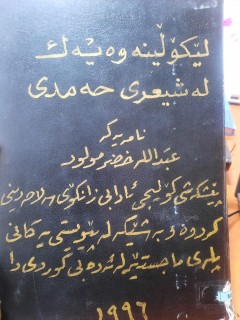 لێکۆڵینەوەیەک
لە شیعری حەمدی
نامەیەکە
عبداللە خضر مولود
پێشکەشی کۆلیجی ئادابی زانکۆی سەلاحەدینی
کردووە و بەشێکە لە پێویستی یەکانی
پلەی ماجستێر لە ئەدەبی کوردی دا
١٩٩٦